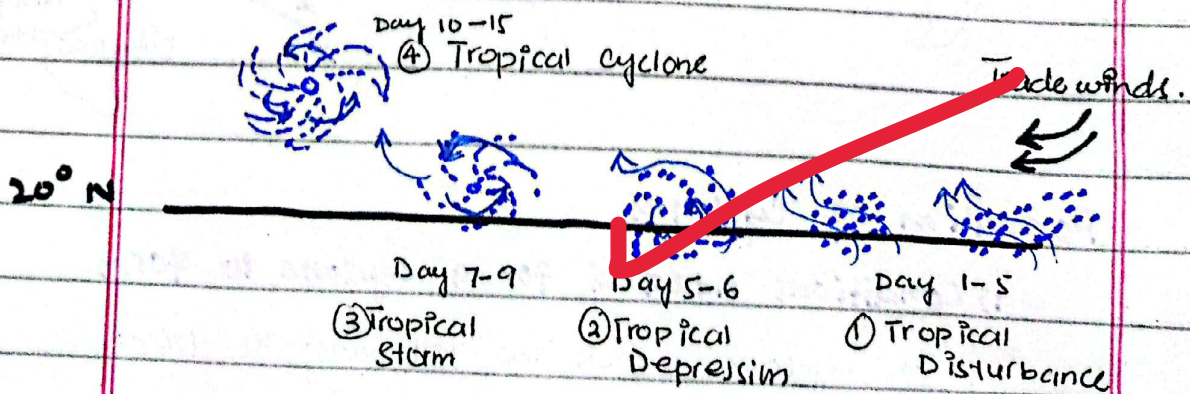 Day 10-15
④ Tropical cyclone
Trade winds.
20° N
Day 7-9
③ Tropical
Storm
Day 5-6
② Tropical
Depression
Day 1-5
① Tropical
Disturbance